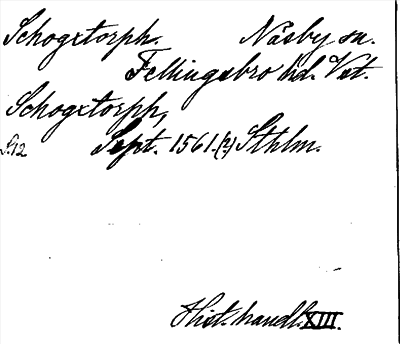 Schogxtorph. Näsby sn.
Fellingsbro hd. Vst.
Schogxtorph,
S.12 Sept. 1561.(?) Sthlm.
Hist. handl. XIII.